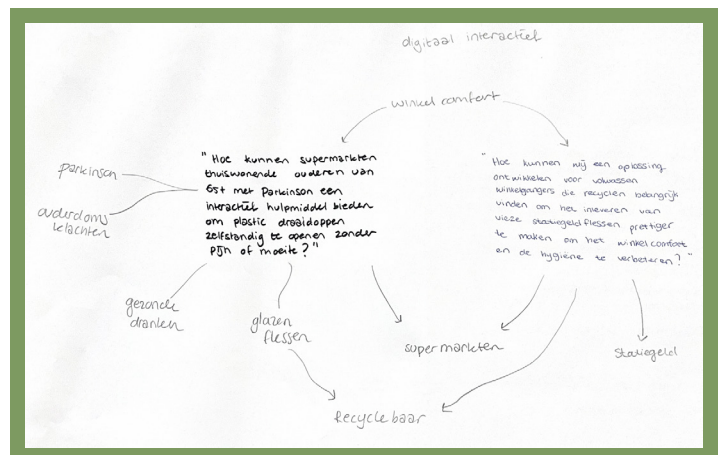 digitaal interactief
winkel comfort
"Hoe kunnen supermarkten
thuiswonende ouderen van
65+ met Parkinson een
interactief hulpmiddel bieden
om plastic draaidoppen
zelfstandig te openen zonder
pijn of moeite?"
"Hoe kunnen wij een oplossing
ontwikkelen voor volwassen
winkelgangers die recyclen belangrijk
vinden om het inleveren van
vieze statiegeldflessen prettiger
te maken om het winkelcomfort
en de hygiëne te verbeteren?"
Parkinson
ouderdoms
klachten
gezonde
dranken
glazen
flessen
supermarkten
Statiegeld
Recyclebaar